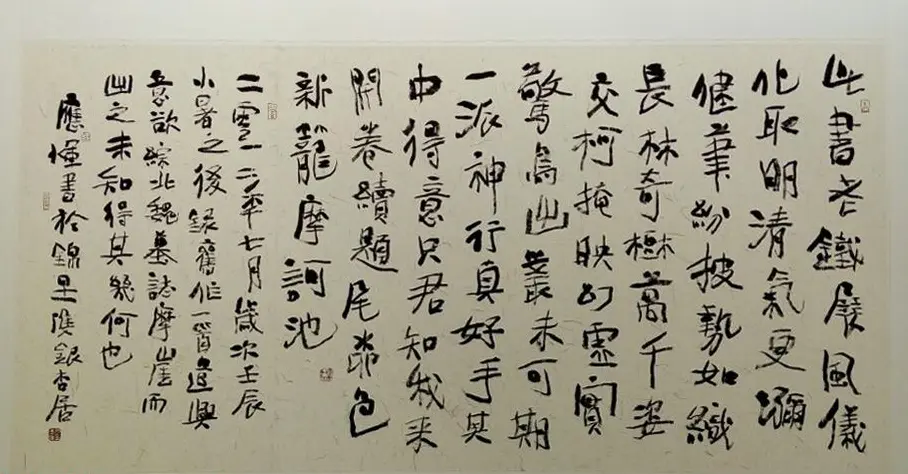 此書老鐵展風儀
化取明清氣更瀰
健筆紛披勢如織
長林奇樾萬千姿
交柯掩映幻虛實
驚鳥出叢未可期
一派神行真好手其
中得意只君知我来
開卷續題尾帋色
新籠摩訶池
二零一二年七月歲次壬辰
小暑之後録舊作一首遣興
意欲綜北魏墓誌摩崖而
出之未知得其幾何也
書於錦里銀杏居